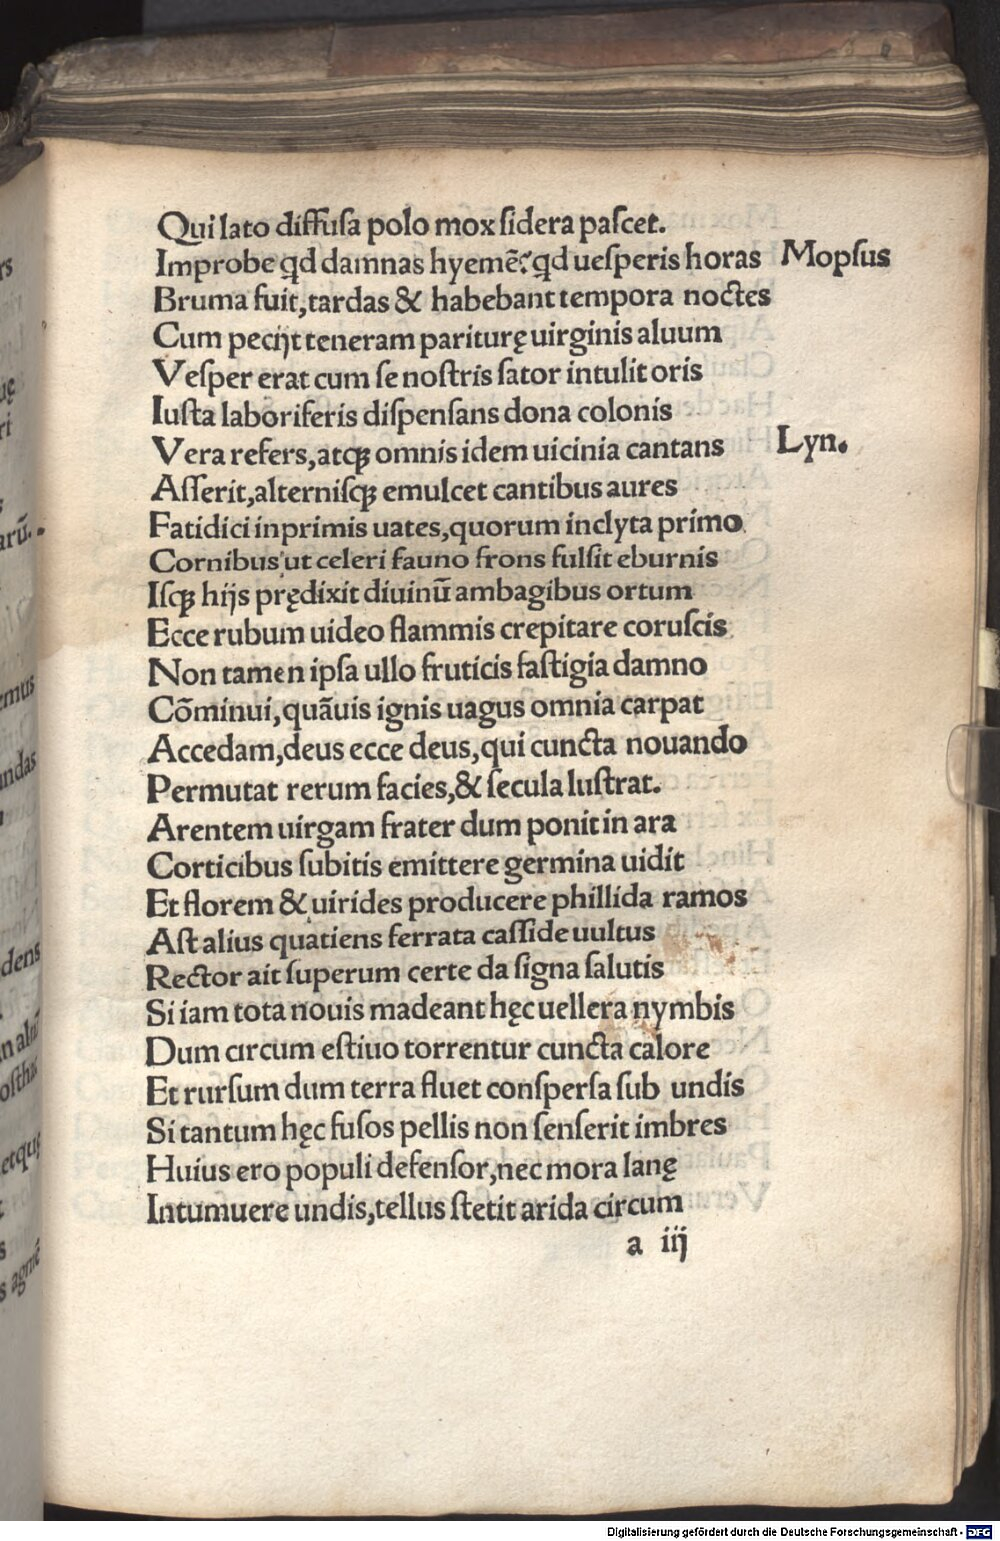 Qui lato diffuſa polo mox ſidera paſcet.
Improbe qd damnas hyemẽ? qd ueſperis horas Mopſus
Bruma fuit, tardas & habebant tempora noctes
Cum pecijt teneram pariturę uirginis aluum
Veſper erat cum ſe noſtris ſator intulit oris
Iuſta laboriferis diſpenſans dona colonis
Vera refers, atqꝫ omnis idem uicinia cantans Lyn.
Aſſerit, alterniſqꝫ emulcet cantibus aures
Fatidici inprimis uates, quorum inclyta primo
Cornibus ut celeri fauno frons fulſit eburnis
Iſqꝫ hijs prędixit diuinū ambagibus ortum
Ecce rubum uideo flammis crepitare coruſcis
Non tamen ipſa ullo fruticis faſtigia damno
Cōminui, quāuis ignis uagus omnia carpat
Accedam, deus ecce deus, qui cuncta nouando
Permutat rerum facies, & ſecula luſtrat.
Arentem uirgam frater dum ponit in ara
Corticibus ſubitis emittere germina uidit
Et florem & uirides producere phillida ramos
Aſt alius quatiens ferrata caſſide uultus
Rector ait ſuperum certe da ſigna ſalutis
Si iam tota nouis madeant hęc uellera nymbis
Dum circum eſtiuo torrentur cuncta calore
Et rurſum dum terra fluet conſperſa ſub undis
Si tantum hęc fuſos pellis non ſenſerit imbres
Huius ero populi defenſor, nec mora lanę
Intumuere undis, tellus ſtetit arida circum
a iij
Digitalisierung gefördert durch die Deutsche Forschungsgemeinschaft - DFG